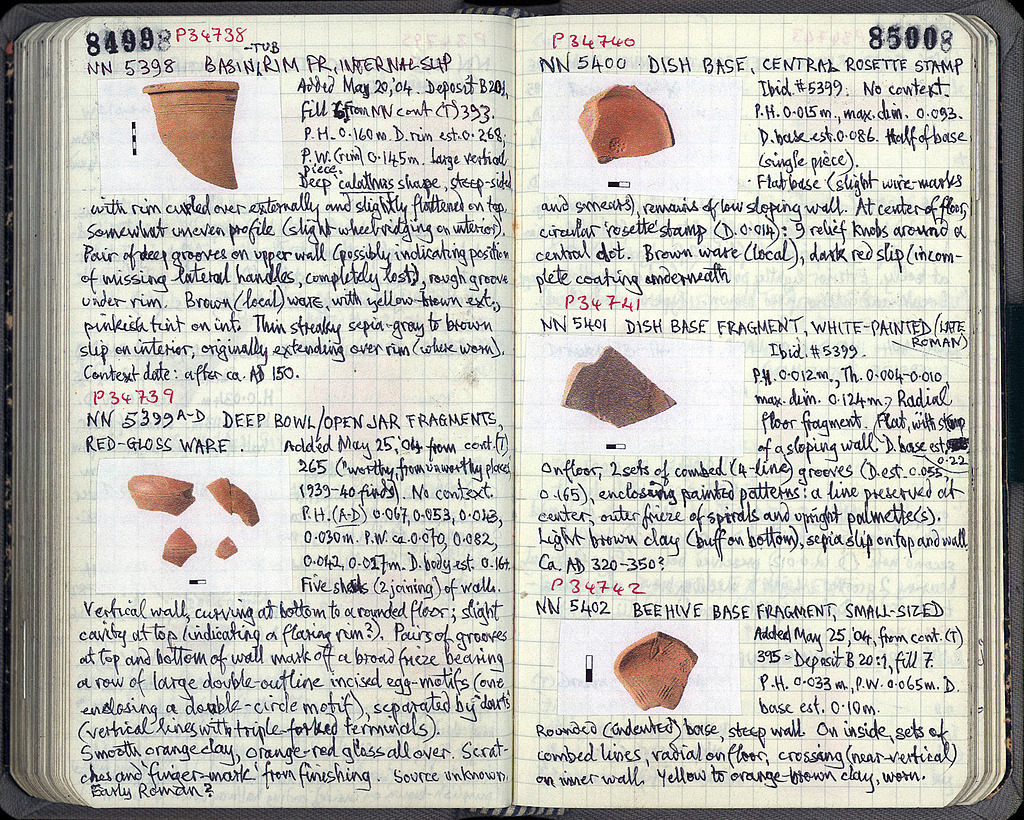 84998 P34738
NN 5398 BASIN-TUB, RIM FR, INTERNAL SLIP
Added May 20,'04. Deposit B20:1,
fill 6, from NN cont (T) 393.
P.H. 0.160m. D. rim est. 0.268;
P.W. (rim) 0.145m. Large vertical
piece.
Deep "calathus" shape, steep-sided
with rim curled over externally and slightly flattened on top.
Somewhat uneven profile (slight wheel-ridging on interior).
Pair of deep grooves on upper wall (possibly indicating position
of missing lateral handles, completely lost), rough groove
under rim. Brown (local) ware, with yellow-brown ext.,
pinkish tint on int. Thin streaky sepia-gray to brown
slip on interior, originally extending over rim (where worn).
Context date: after ca. AD 150.
P34739
NN 5399 A-D DEEP BOWL/OPEN JAR FRAGMENTS,
RED-GLOSS WARE. Added May 25,'04 from cont. (T)
265 ("worthy, from unworthy places,
1939-40 finds). No context.
P.H. (A-D) 0.067, 0.053, 0.043,
0.030m. P.W. ca. 0.070, 0.082,
0.042, 0.017m. D. body est. 0.164.
Five sherds (2 joining) of walls.
Vertical wall, curving at bottom to a rounded floor; slight
cavity at top (indicating a flaring rim?). Pairs of grooves
at top and bottom of wall mark off a broad frieze bearing
a row of large double-outline incised egg-motifs (one
enclosing a double-circle motif), separated by "darts"
(vertical lines with triple-forked terminals).
Smooth orange clay, orange-red gloss all over. Scrat-
ches and 'finger-mark' from finishing. Source unknown.
Early Roman?
P34740 85008
NN 5400 DISH BASE, CENTRAL ROSETTE STAMP
Ibid. #5399. No context.
P.H. 0.015m., max. dim. 0.093.
D. base est. 0.086. Half of base
(single piece).
Flat base (slight wire-marks
and smears), remains of low sloping wall. At center of floor,
circular 'rosette' stamp (D. 0.014): 9 relief knobs around a
central dot. Brown ware (local), dark red slip (incom-
plete coating underneath
P34741
NN 5401 DISH BASE FRAGMENT, WHITE-PAINTED (LATE
ROMAN)
Ibid. #5399.
P.H. 0.012m., Th. 0.004-0.010
max. dim. 0.124m. Radial
floor fragment. Flat, with stump
of a sloping wall. D. base est.
0.22
On floor, 2 sets of combed (4-line) grooves (D. est. 0.055,
0.165), enclosing painted patterns: a line preserved at
center, outer frieze of spirals and upright palmette(s).
Light brown clay (buff on bottom), sepia slip on top and wall.
Ca. AD 320-350?
P34742
NN 5402 BEEHIVE BASE FRAGMENT, SMALL-SIZED
Added May 25,'04, from cont. (T)
395 = Deposit B 20:1, fill 7.
P.H. 0.033m., P.W. 0.065m. D.
base est. 0.10m.
Rounded (indented) base, steep wall. On inside, sets of
combed lines, radial on floor, crossing (near-vertical)
on inner wall. Yellow to orange-brown clay, worn.